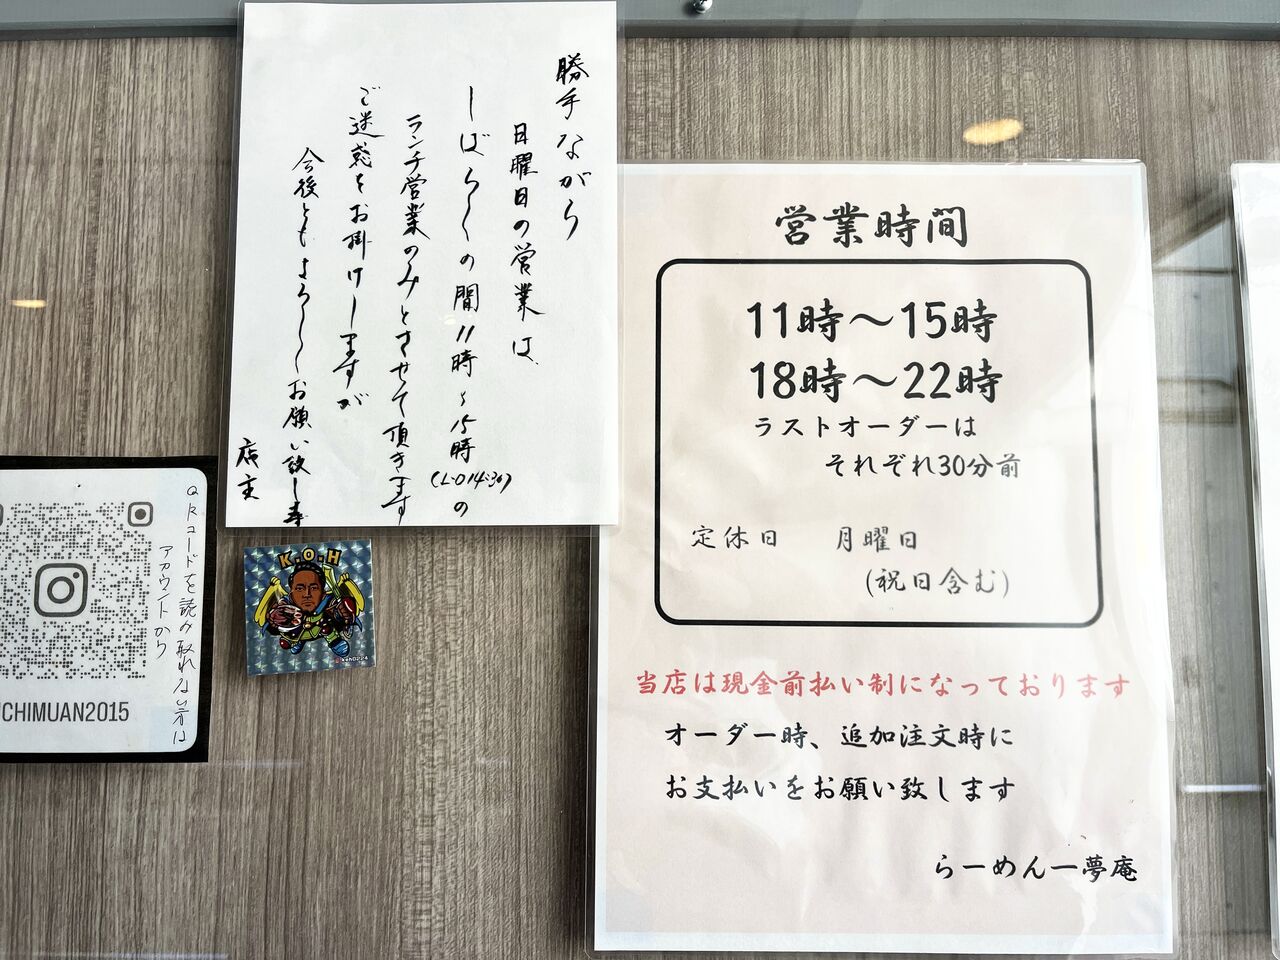 勝手ながら
日曜日の営業は、
しばらくの間11時〜15時(L.O14:30)の
ランチ営業のみとさせて頂きます
ご迷惑をお掛けしますが
今後ともよろしくお願い致します
店主
営業時間
11時〜15時
18時〜22時
ラストオーダーは
それぞれ30分前
定休日 月曜日
(祝日含む)
当店は現金前払い制になっております
オーダー時、追加注文時に
お支払いをお願い致します
らーめん一夢庵
QRコードを読み取れない方は
アカウントから
CHIMUAN2015
K.O.H